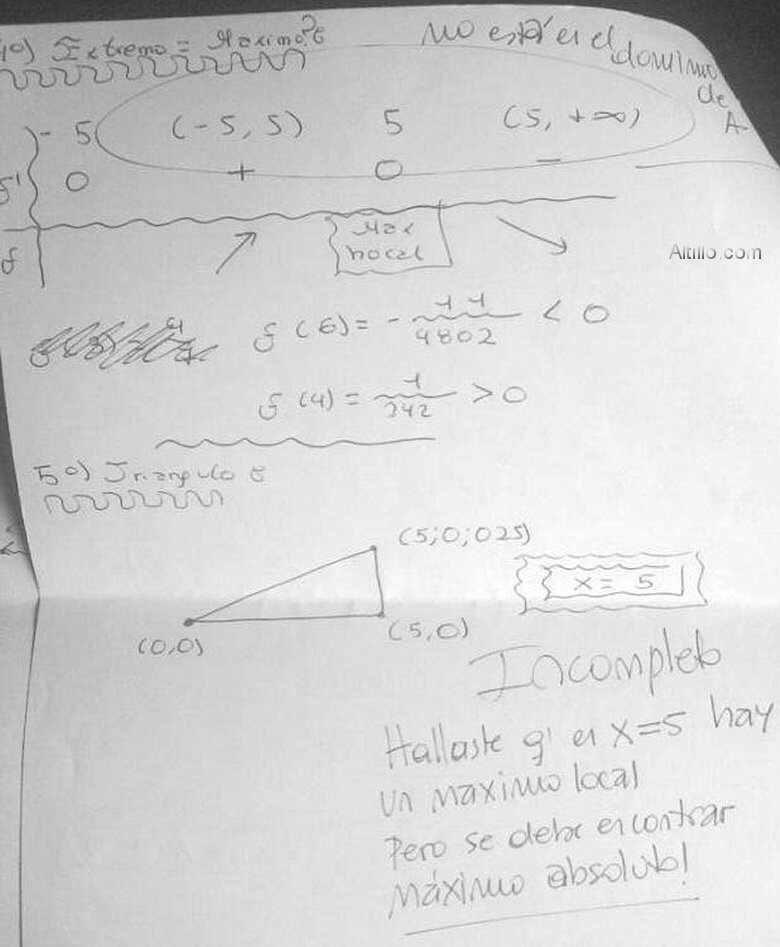 4º) Extremo = Maximo?
no está en el dominio de A
- 5 (-5, 5) 5 (5, +∞)
f' 0 + 0 -
f ↗ Max Local ↘
Altillo.com
f (6) = - 11/4802 < 0
f (4) = 1/242 > 0
5º) Triangulo
(5;0;025)
x = 5
(0,0) (5,0)
Incompleto
Hallaste q' en x=5 hay
un maximo local
Pero se debe encontrar
máximo absoluto!